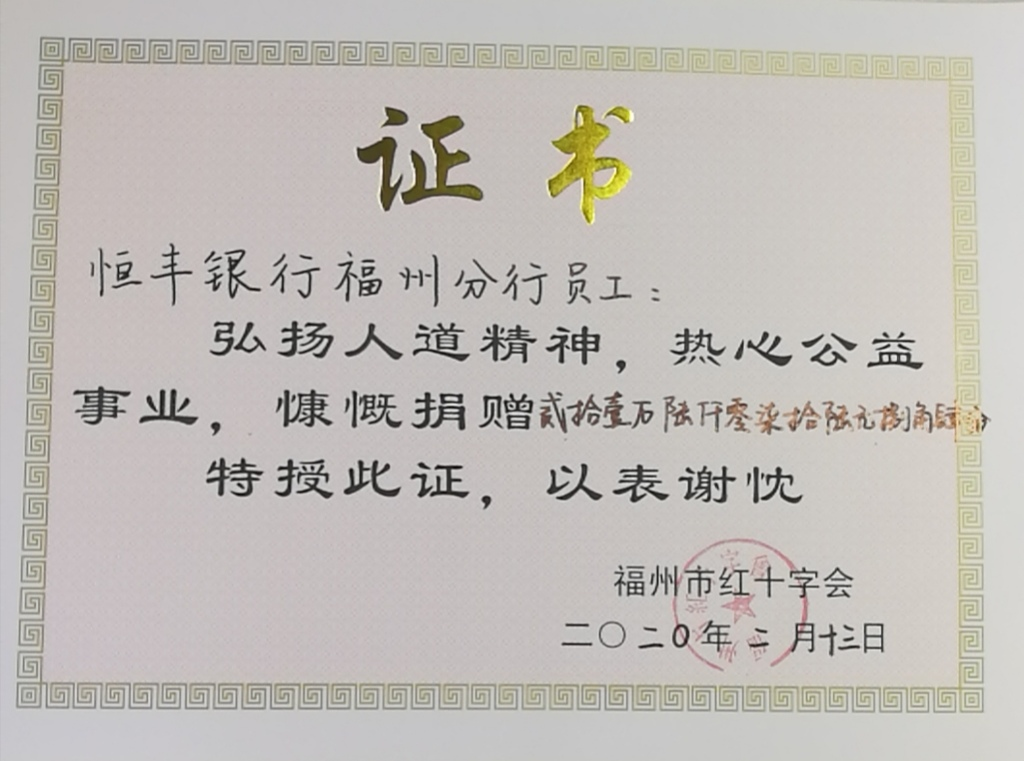 证书
恒丰银行福州分行员工：
弘扬人道精神，热心公益
事业，慷慨捐赠贰拾壹万陆仟零柒拾陆元捌角肆分
特授此证，以表谢忱
福州市红十字会
二〇二0年二月十三日